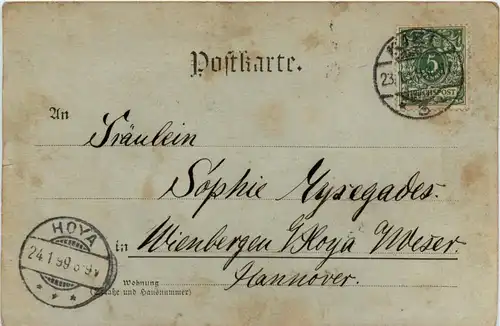 Postkarte.
5
REICHSPOST
23.
3
An
Fräulein
Sophie Gyxegades.
HOYA
24 1 99
in Wienbergen b/Hoya Weser.
Hannover.
Wohnung
(Straße und Hausnummer)